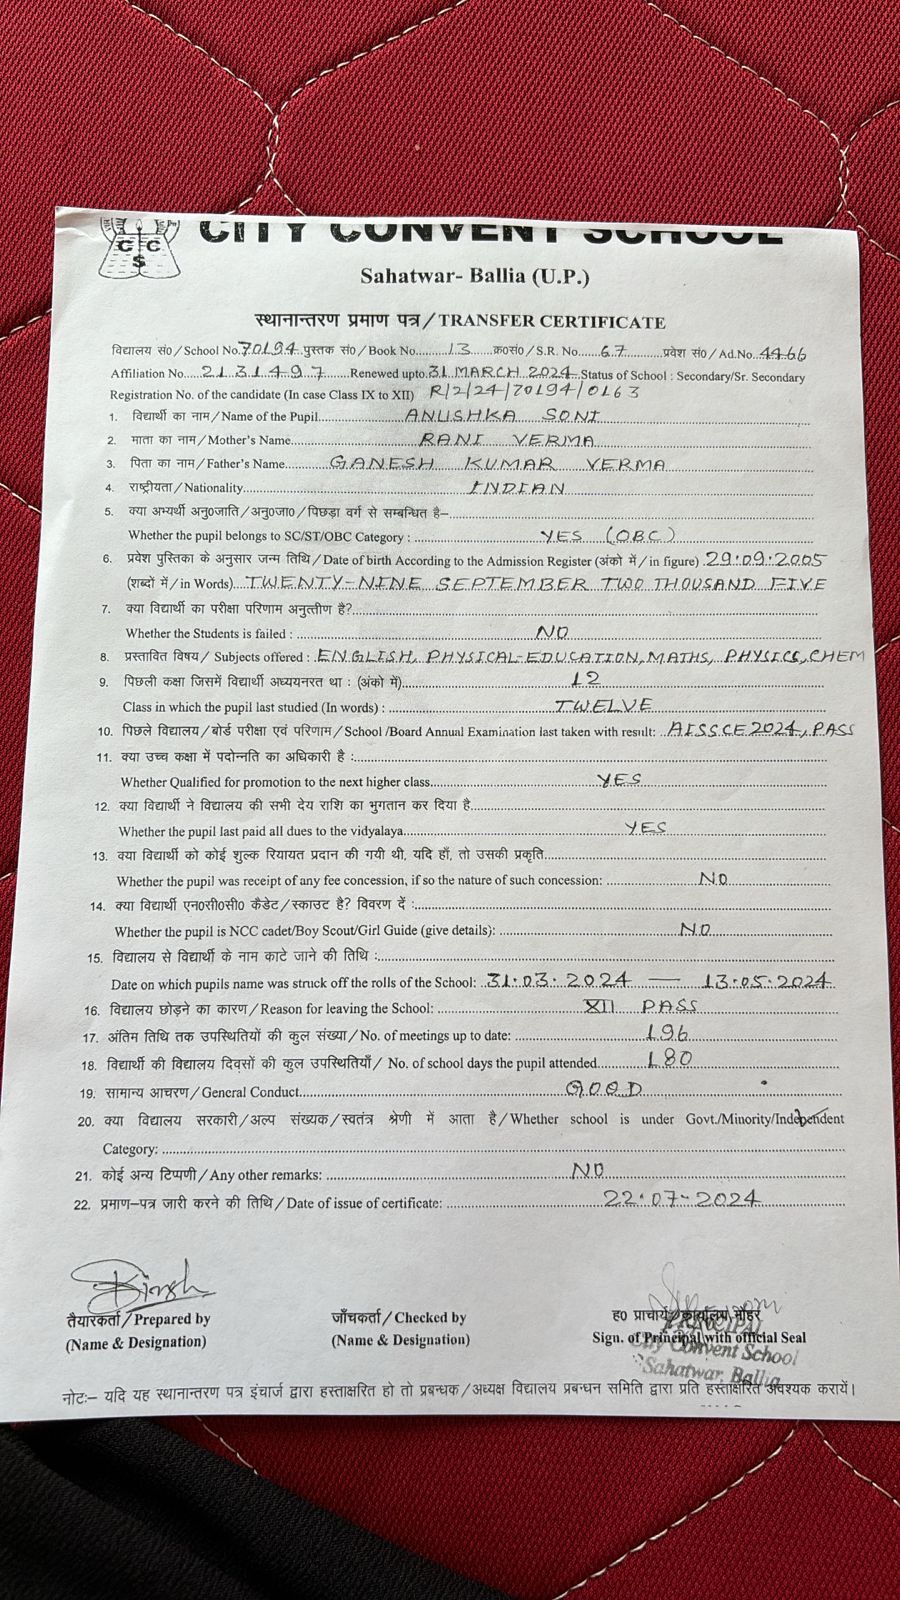 CITY CONVENT SCHOOL
C C
S
Sahatwar- Ballia (U.P.)
स्थानान्तरण प्रमाण पत्र / TRANSFER CERTIFICATE
विद्यालय सं० / School No. 70194 पुस्तक सं० / Book No. 13 क्र०सं० / S.R. No. 67 प्रवेश सं० / Ad.No. 4466
Affiliation No. 2131497 Renewed upto 31 MARCH 2024 Status of School : Secondary/Sr. Secondary
Registration No. of the candidate (In case Class IX to XII) R/2/24/70194/0163
1. विद्यार्थी का नाम / Name of the Pupil ANUSHKA SONI
2. माता का नाम / Mother's Name RANI VERMA
3. पिता का नाम / Father's Name GANESH KUMAR VERMA
4. राष्ट्रीयता / Nationality INDIAN
5. क्या अभ्यर्थी अनु०जाति / अनु०जा० / पिछड़ा वर्ग से सम्बन्धित है–
Whether the pupil belongs to SC/ST/OBC Category : YES (OBC)
6. प्रवेश पुस्तिका के अनुसार जन्म तिथि / Date of birth According to the Admission Register (अंको में / in figure) 29.09.2005
(शब्दों में / in Words) TWENTY-NINE SEPTEMBER TWO THOUSAND FIVE
7. क्या विद्यार्थी का परीक्षा परिणाम अनुत्तीण है?
Whether the Students is failed : NO
8. प्रस्तावित विषय / Subjects offered : ENGLISH, PHYSICAL-EDUCATION, MATHS, PHYSICS, CHEM
9. पिछली कक्षा जिसमें विद्यार्थी अध्ययनरत था : (अंको में) 12
Class in which the pupil last studied (In words) : TWELVE
10. पिछले विद्यालय / बोर्ड परीक्षा एवं परिणाम / School /Board Annual Examination last taken with result: AISSCE 2024, PASS
11. क्या उच्च कक्षा में पदोन्नति का अधिकारी है :
Whether Qualified for promotion to the next higher class YES
12. क्या विद्यार्थी ने विद्यालय की सभी देय राशि का भुगतान कर दिया है
Whether the pupil last paid all dues to the vidyalaya YES
13. क्या विद्यार्थी को कोई शुल्क रियायत प्रदान की गयी थी, यदि हाँ, तो उसकी प्रकृति
Whether the pupil was receipt of any fee concession, if so the nature of such concession: NO
14. क्या विद्यार्थी एन०सी०सी० कैडेट / स्काउट है? विवरण दें :
Whether the pupil is NCC cadet/Boy Scout/Girl Guide (give details): NO
15. विद्यालय से विद्यार्थी के नाम काटे जाने की तिथि :
Date on which pupils name was struck off the rolls of the School: 31.03.2024 — 13.05.2024
16. विद्यालय छोड़ने का कारण / Reason for leaving the School: XII PASS
17. अंतिम तिथि तक उपस्थितियों की कुल संख्या / No. of meetings up to date: 196
18. विद्यार्थी की विद्यालय दिवसों की कुल उपस्थितियाँ / No. of school days the pupil attended 180
19. सामान्य आचरण / General Conduct GOOD
20. क्या विद्यालय सरकारी / अल्प संख्यक / स्वतंत्र श्रेणी में आता है / Whether school is under Govt./Minority/Independent
Category:
21. कोई अन्य टिप्पणी / Any other remarks: NO
22. प्रमाण–पत्र जारी करने की तिथि / Date of issue of certificate: 22-07-2024
तैयारकर्ता / Prepared by जाँचकर्ता / Checked by ह० प्राचार्य, कार्यालय मोहर
(Name & Designation) (Name & Designation) Sign. of Principal with official Seal
PRINCIPAL
City Convent School
Sahatwar, Ballia
नोटः– यदि यह स्थानान्तरण पत्र इंचार्ज द्वारा हस्ताक्षरित हो तो प्रबन्धक / अध्यक्ष विद्यालय प्रबन्धन समिति द्वारा प्रति हस्ताक्षरित अवश्यक करायें।